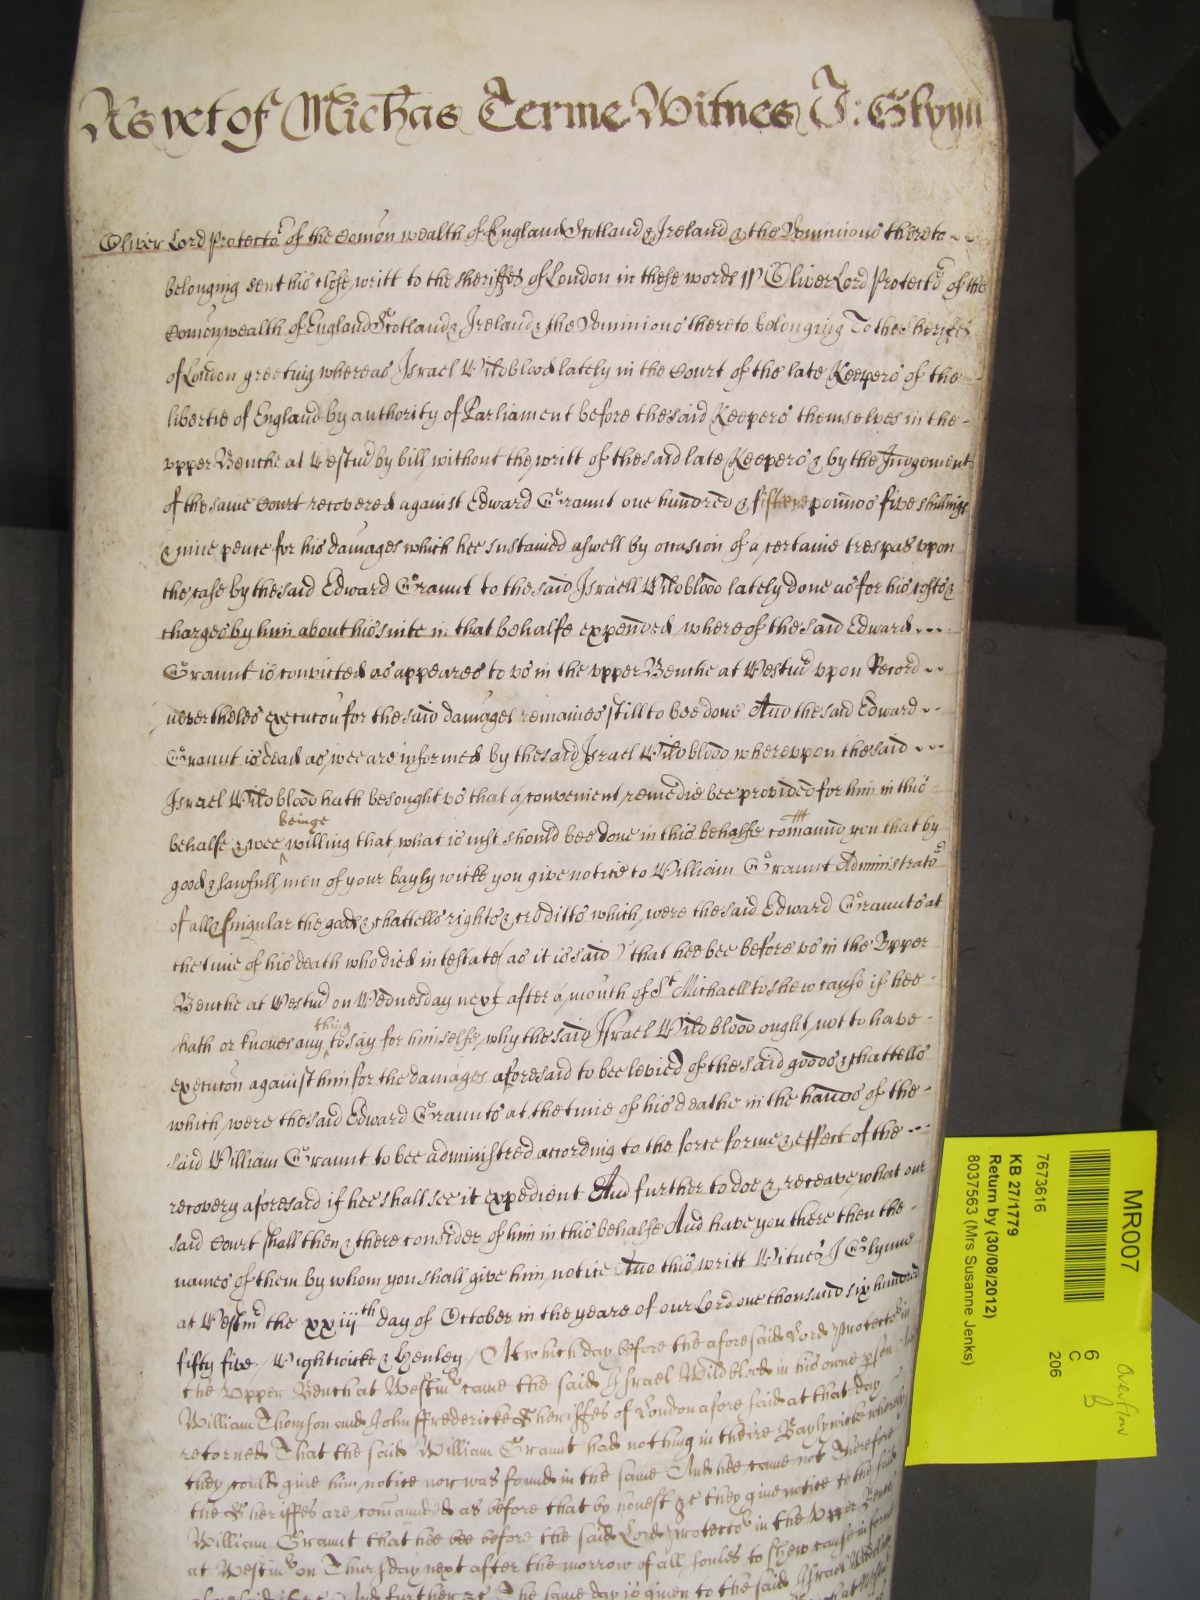 As yet of Michas Terme Witnes J: Glynn
Oliver Lord Protector of the Comon wealth of England Scotland & Ireland & the Dominions thereto
belonging sent his close writt to the sheriffes of London in these words ss Oliver Lord Protector of the
Comonwealth of England Scotland & Ireland & the Dominions thereto belonging To the Sheriffes
of London greeting whereas Israel Wildblood lately in the Court of the late Keepers of the
libertie of England by authority of Parliament before the said Keepers themselves in the
vpper Benche at Westmr by bill without the writt of the said late Keepers & by the Judgement
of the same Court recovered against Edward Graunt one hundred & fifteene pounds five shillings
& nine pence for his damages which hee sustained aswell by occasion of a certaine trespas vpon
the case by the said Edward Graunt to the said Israell Wildblood lately done as for his costs &
charges by him about his suite in that behalfe expended whereof the said Edward
Graunt is convicted as appeares to vs in the vpper Benche at Westmr vpon Record
neverthelesse execucon for the said damages remaines still to bee done And the said Edward
Graunt is dead as wee are informed by the said Israel Wildblood wherevpon the said
Israel Wildblood hath besought vs that a convenient remedie bee provided for him in this
behalfe & wee beinge willing that what is iust should bee done in this behalfe comaund you that by
good & lawfull men of your baylywicke you give notice to William Graunt Administrator
of all & singular the goods & chattells rights & creditts which were the said Edward Graunts at
the time of his death who died intestate (as it is said) that hee bee before vs in the Vpper
Benche at Westmr on Wednesday next after a month of St Michaell to shew cause if hee
hath or knowes any thing to say for himselfe why the said Israel Wildblood ought not to have
execucon against him for the damages aforesaid to bee levied of the said goods & chattells
which were the said Edward Graunts at the time of his deathe in the hands of the
said William Graunt to bee administred according to the force forme & effect of the
recovery aforesaid if hee shall see it expedient And further to doe & receave what our
said Court shall then & there consider of him in this behalfe And have you there then the
names of them by whom you shall give him notice And this writt Witnes J Glynne
at Westmr the xxiijth day of October in the yeare of our Lord one thousand six hundred
fifty five / Wightwicke & Henley / At which day before the aforesaid Lord Protector in
the Vpper Bench at Westmr came the said Israel Wildblood in his owne pson
William Thomson and John Ffredericke Sheriffes of London aforesaid at that day
retorned That the said William Graunt had nothing in theire Baylywicke whereby
they could give him notice nor was found in the same And hee came not Therefore
the Sheriffes are comaunded as before that by honest &c they give notice to the said
William Graunt that hee bee before the said Lord Protector in the Vpper Bench
at Westmr on Thursday next after the morrow of all soules to shew cause in forme
aforesaid if &c And further &c The same day is given to the said Israel Wildblood
MR007
6
C
206
7673616
KB 27/1779
Return by (30/08/2012)
8037563 (Mrs Susanne Jenks)